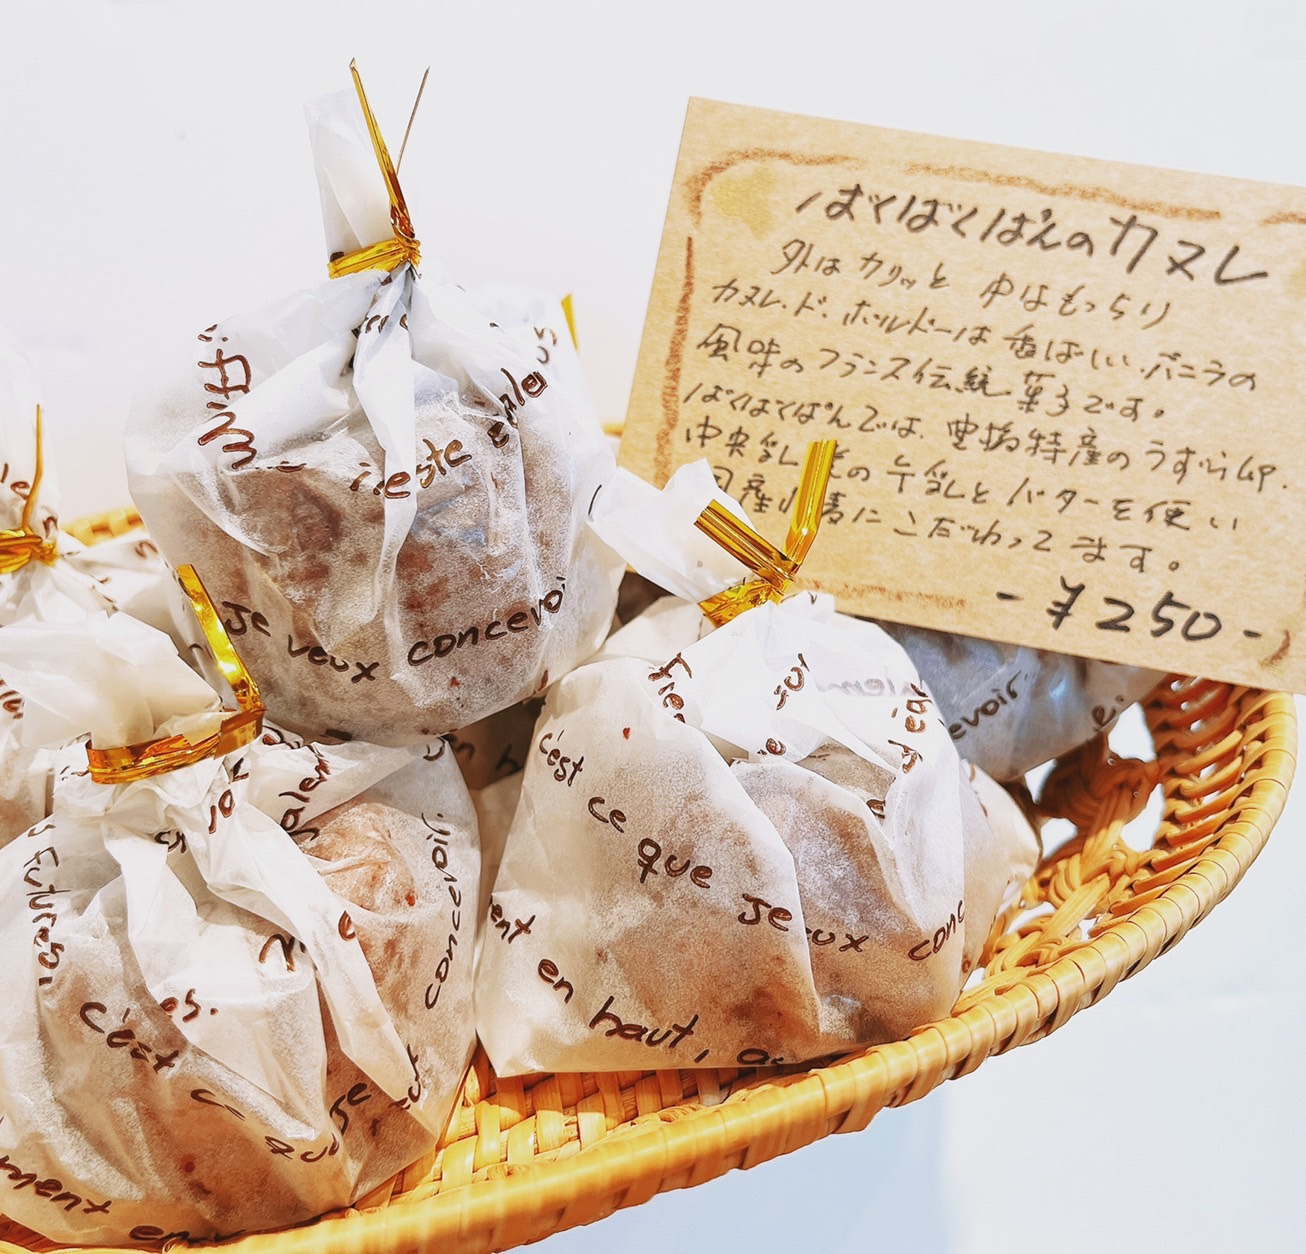 ぱくぱくぱんのカヌレ
外はカリッと 中はもっちり
カヌレ・ド・ボルドーは香ばしいバニラの
風味のフランス伝統菓子です。
ぱくぱくぱんでは、豊橋特産のうずら卵、
中央製乳の牛乳とバターを使い
国産小麦にこだわってます。
-¥250-
Je veux concevoir
c'est ce que je veux
conc
en haut,
concevoir.
c'est ce que je
evoir.